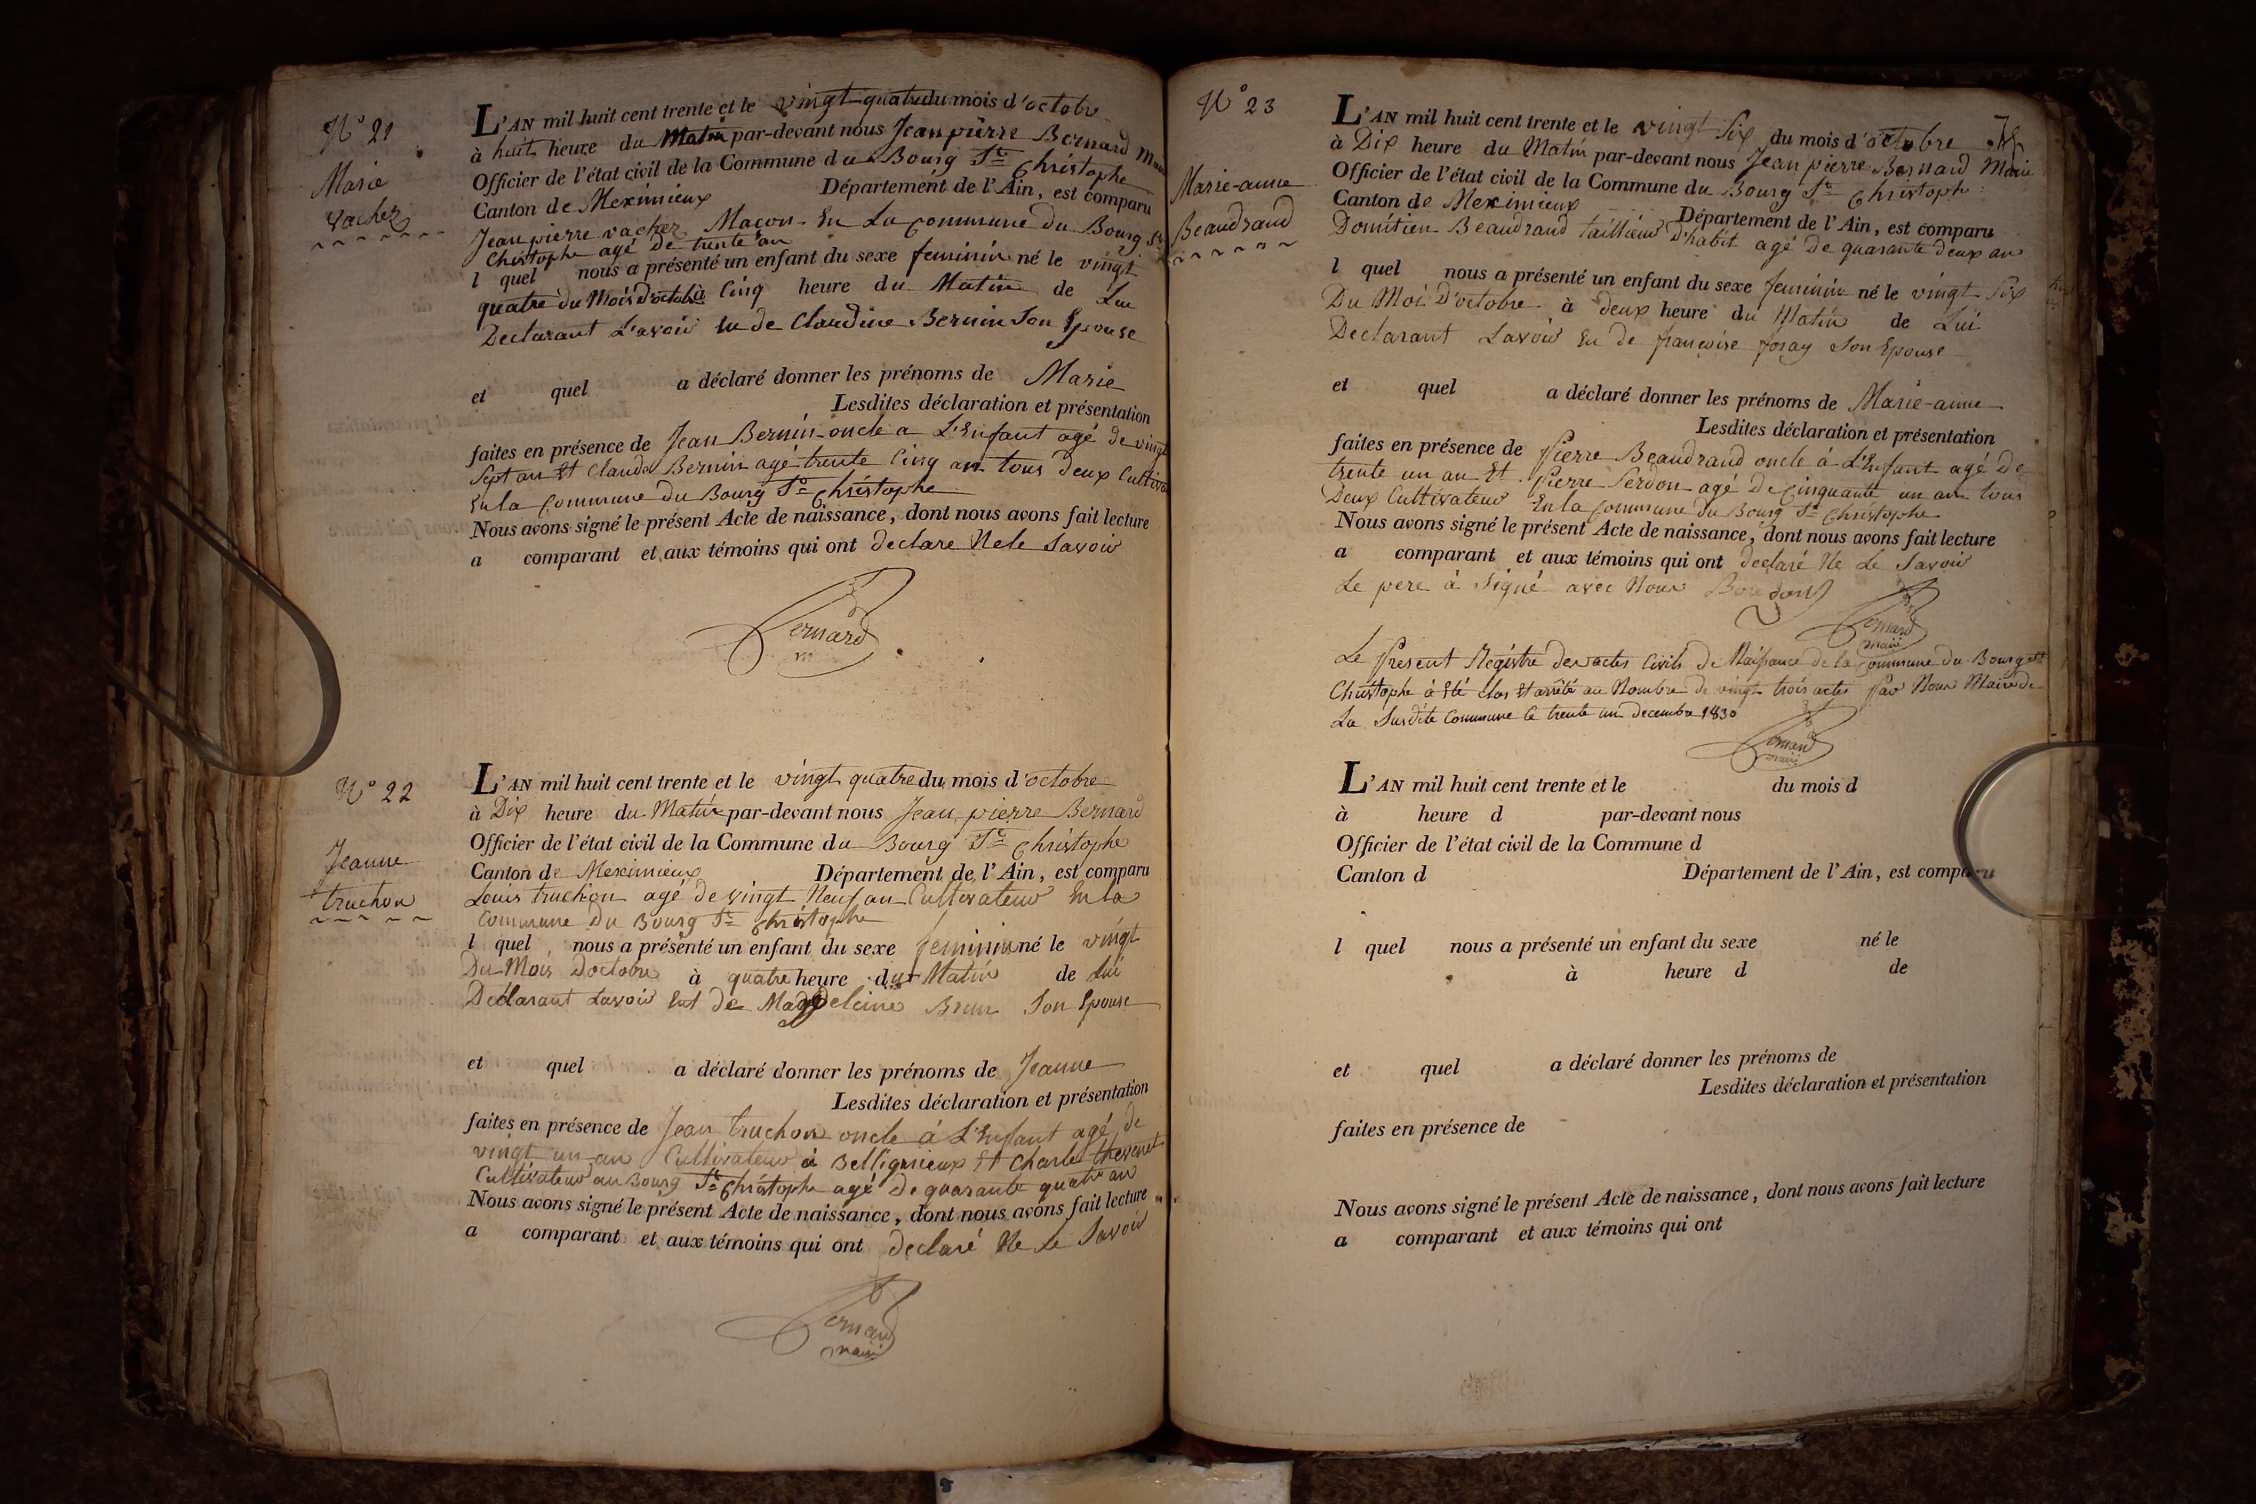 N° 21
Marie
vachez
L'AN mil huit cent trente et le vingt quatre du mois d'octobre
à huit heure du Matin par-devant nous Jean pierre Bernard Maire
Officier de l'état civil de la Commune du Bourg St Christophe
Canton de Meximieux Département de l'Ain, est comparu
Jean pierre vachez Maçon En La Commune du Bourg St
Christophe agé De trente an
l quel nous a présenté un enfant du sexe feminin né le vingt
quatre du Mois d'octobre à Cinq heure du Matin de Lui
Declarant L'avoir Eu de Claudine Bernin Son Epouse
et quel a déclaré donner les prénoms de Marie
Lesdites déclaration et présentation
faites en présence de Jean Bernin oncle a L'Enfant agé de vingt
Sept an Et Claude Bernin agé trente Cinq an tous deux Cultiva
En la Commune du Bourg St Christophe
Nous avons signé le présent Acte de naissance, dont nous avons fait lecture
a comparant et aux témoins qui ont declare Ne le Savoir
Bernard
m
N° 22
Jeanne
truchon
L'AN mil huit cent trente et le vingt quatre du mois d'octobre
à Dix heure du Matin par-devant nous Jean pierre Bernard
Officier de l'état civil de la Commune du Bourg St Christophe
Canton de Meximieux Département de l'Ain, est comparu
Louis truchon agé de vingt Neuf an Cultivateur En la
Commune Du Bourg St Christophe
l quel nous a présenté un enfant du sexe feminin né le vingt
Du Mois Doctobre à quatre heure du Matin de Lui
Déclarant Lavoir Eut de Magdeleine Brun Son Epouse
et quel a déclaré donner les prénoms de Jeanne
Lesdites déclaration et présentation
faites en présence de Jean truchon oncle á L'Enfant agé de
vingt un an Cultivateur á Belligneux Et Charle thevenet
Cultivateur au Bourg St Christophe agé de quarante quatre an
Nous avons signé le présent Acte de naissance, dont nous avons fait lecture
a comparant et aux témoins qui ont déclaré Ne Le Savoir
Bernard
maire
N° 23
Marie-anne
Beaudrand
L'AN mil huit cent trente et le vingt Six du mois d'octobre
à Dix heure du Matin par-devant nous Jean pierre Bernard Maire
Officier de l'état civil de la Commune du Bourg St Christophe
Canton de Meximieux Département de l'Ain, est comparu
Domitien Beaudrand taillieur D'habit agé De quarante deux an
l quel nous a présenté un enfant du sexe feminin né le vingt Six
Du Mois D'octobre à deux heure du Matin de Lui
Declarant Lavoir Eu de françoise foray Son Epouse
et quel a déclaré donner les prénoms de Marie-anne
Lesdites déclaration et présentation
faites en présence de Pierre Beaudrand oncle á L'Enfant agé De
trente un an Et Pierre Perdon agé De Cinquante un an tous
Deux Cultivateur En la Commune Du Bourg St Christophe
Nous avons signé le présent Acte de naissance, dont nous avons fait lecture
a comparant et aux témoins qui ont declaré Ne Le Savoir
Le pere à Signé avec Nous
Bernard
maire
Le Présent Régistre des actes Civils De Naissance de la Commune du Bourg St
Christophe à Eté clos Et arrêté au Nombre de vingt trois actes Par Nous Maire de
La Susdite Commune le trente un decembre 1830
Bernard
maire
L'AN mil huit cent trente et le du mois d
à heure d par-devant nous
Officier de l'état civil de la Commune d
Canton d Département de l'Ain, est comparu
l quel nous a présenté un enfant du sexe né le
à heure d de
et quel a déclaré donner les prénoms de
Lesdites déclaration et présentation
faites en présence de
Nous avons signé le présent Acte de naissance, dont nous avons fait lecture
a comparant et aux témoins qui ont